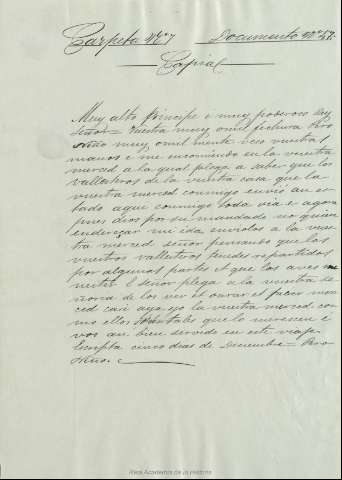 Carpeta Nº 7 Documento Nº 57.
Copia
Muy alto principe é muy poderoso Rey
Señor = Vuestra muy omil fechura Pero
Niño muy omil mente beso vuestras
manos e me encomiendo en la vuestra
merced a la qual plega a saber que los
vallesteros de la vuestra casa que la
vuestra merced conmigo envió an es-
tado aqui conmigo toda via e agora
pues dios por su mandado no quiso
endereçar mi ida enviolos a la vues-
tra merced señor pensando que los
vuestros vallesteros tenedes repartidos
por algunas partes et que los aves me-
nester E señor plega a la vuestra se-
ñoria de los ver et onrar et facer mer-
ced can aya yo la vuestra merced co-
mo ellos son tales que lo merecen e
vos an bien servido en este viaje
Escripta cinco dias de Decembre = Pero
Niño.
Real Academia de la Historia